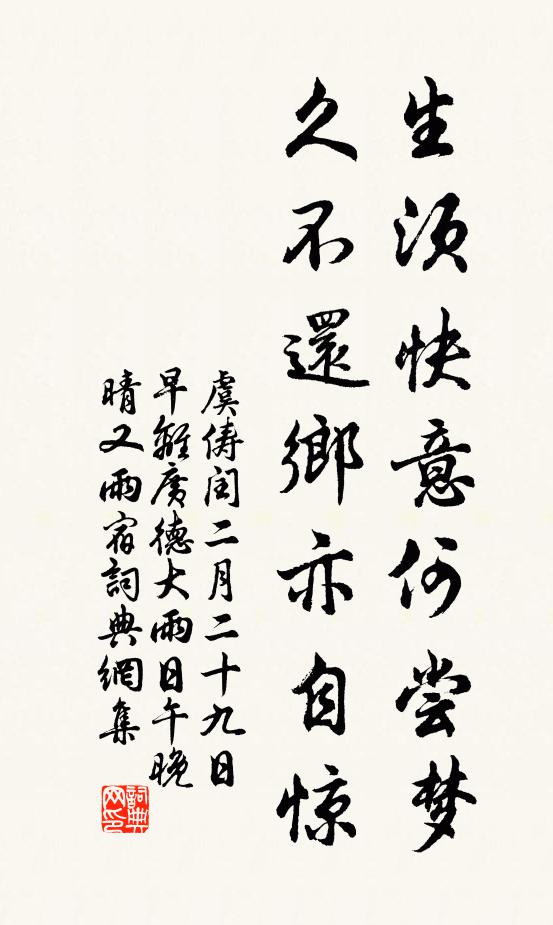 生须快意何尝梦
久不還鄉亦自惊
虞俦闰二月二十九日
早離廣德大雨日午晚
晴又雨宿詞典網集
詞典
网印